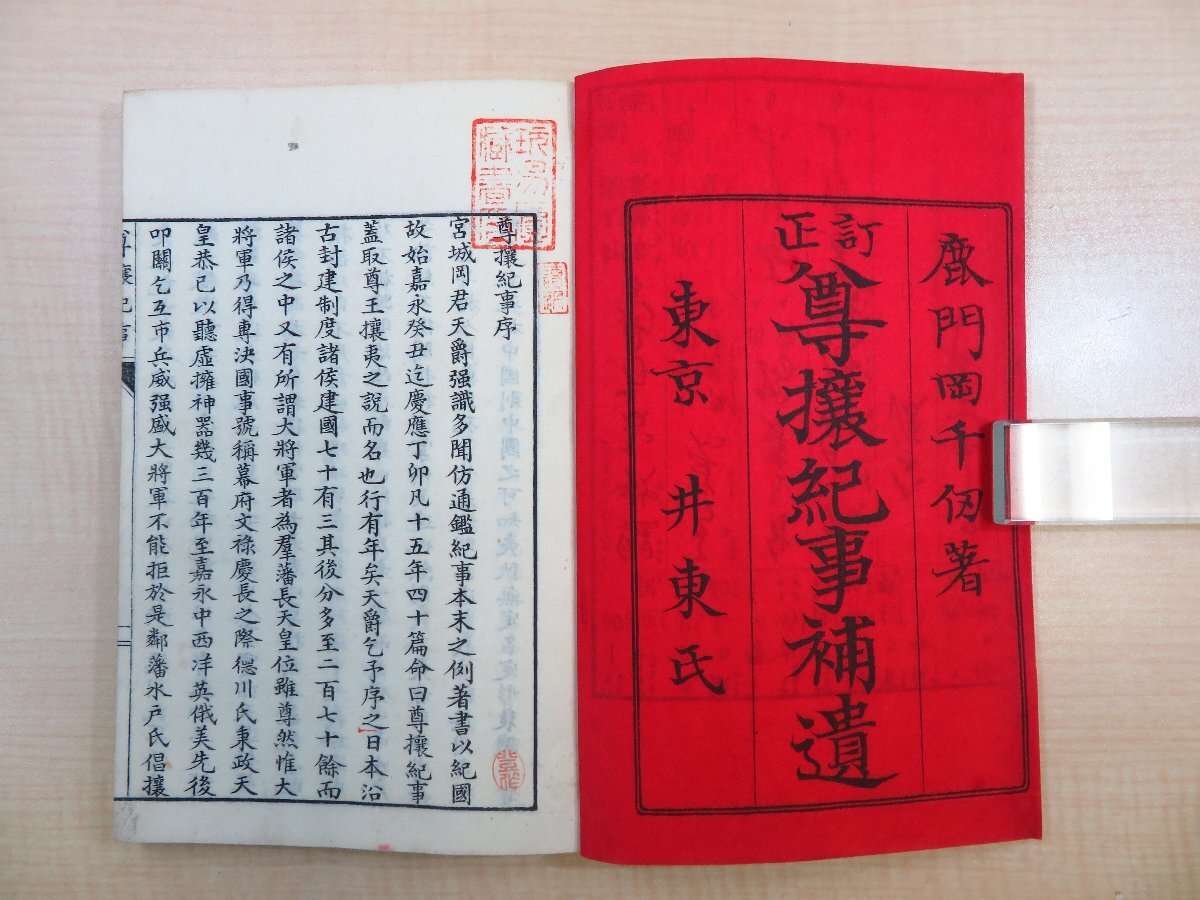 鹿門岡千仭著
訂正
尊攘紀事補遺
東京 井東氏
尊攘紀事序
宮城岡君天爵强識多聞仿通鑑紀事本末之例著書以紀國
故始嘉永癸丑迄慶應丁卯凡十五年四十篇命曰尊攘紀事
蓋取尊王攘夷之説而名也行有年矣天爵乞予序之日本沿
古封建制度諸侯建國七十有三其後分多至二百七十餘而
諸侯之中又有所謂大將軍者為羣藩長天皇位雖尊然惟大
將軍乃得專決國事號稱幕府文祿慶長之際德川氏秉政天
皇恭己以聽虛擁神器幾三百年至嘉永中西洋英俄美先後
叩關乞互市兵威强盛大將軍不能拒於是鄰藩水戸氏倡攘
尊攘紀事